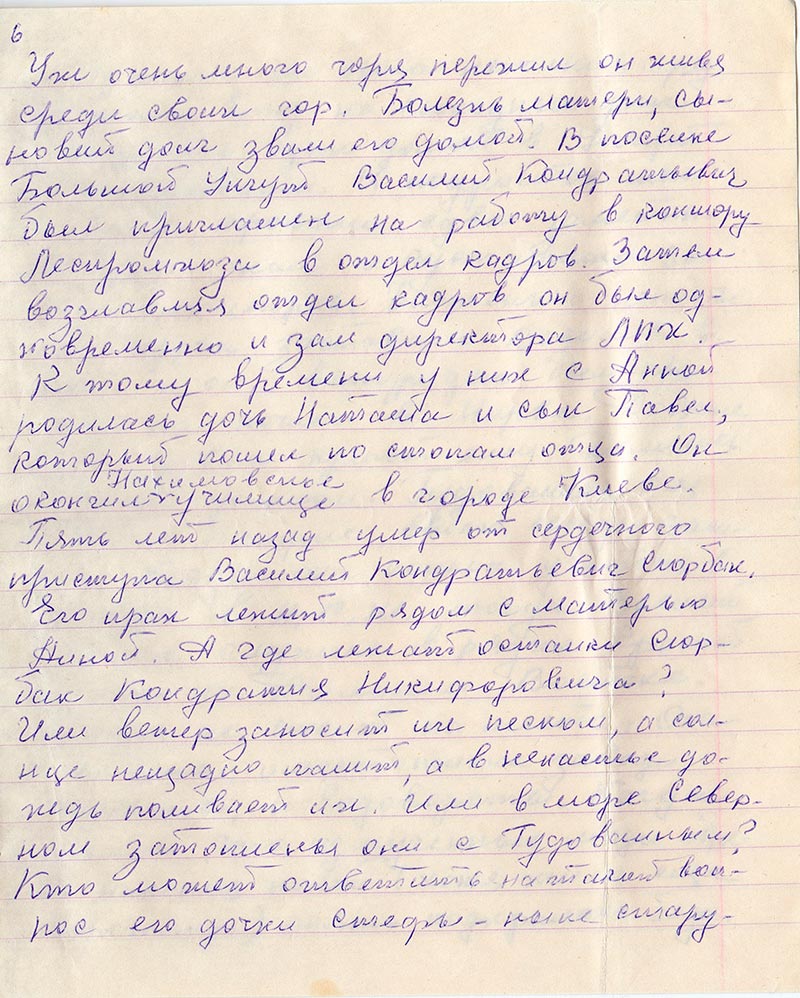 6
Уж очень много горя пережил он живя
среди своих гор. Болезнь матери, сы-
новий долг звали его домой. В посёлке
Большой Унгут Василий Кондратьевич
был приглашен на работу в контору
Леспромхоза в отдел кадров. Затем
возглавляя отдел кадров он был од-
новременно и зам директора ЛПХ.
К тому времени у них с Анной
родилась дочь Наташа и сын Павел,
который пошел по стопам отца. Он
Нахимовское
окончил училище в городе Киеве.
Пять лет назад умер от сердечного
приступа Василий Кондратьевич Скорбак.
Его прах лежит рядом с матерью
Анной. А где лежат останки Скор-
бак Кондратия Никифоровича?
Или ветер заносит их песком, а сол-
нце нещадно палит, а в ненастье до-
ждь поливает их. Или в море Север-
ном затоплены они с
Кто может ответить на такой воп-
рос его дочки Стефы - ныне стару-